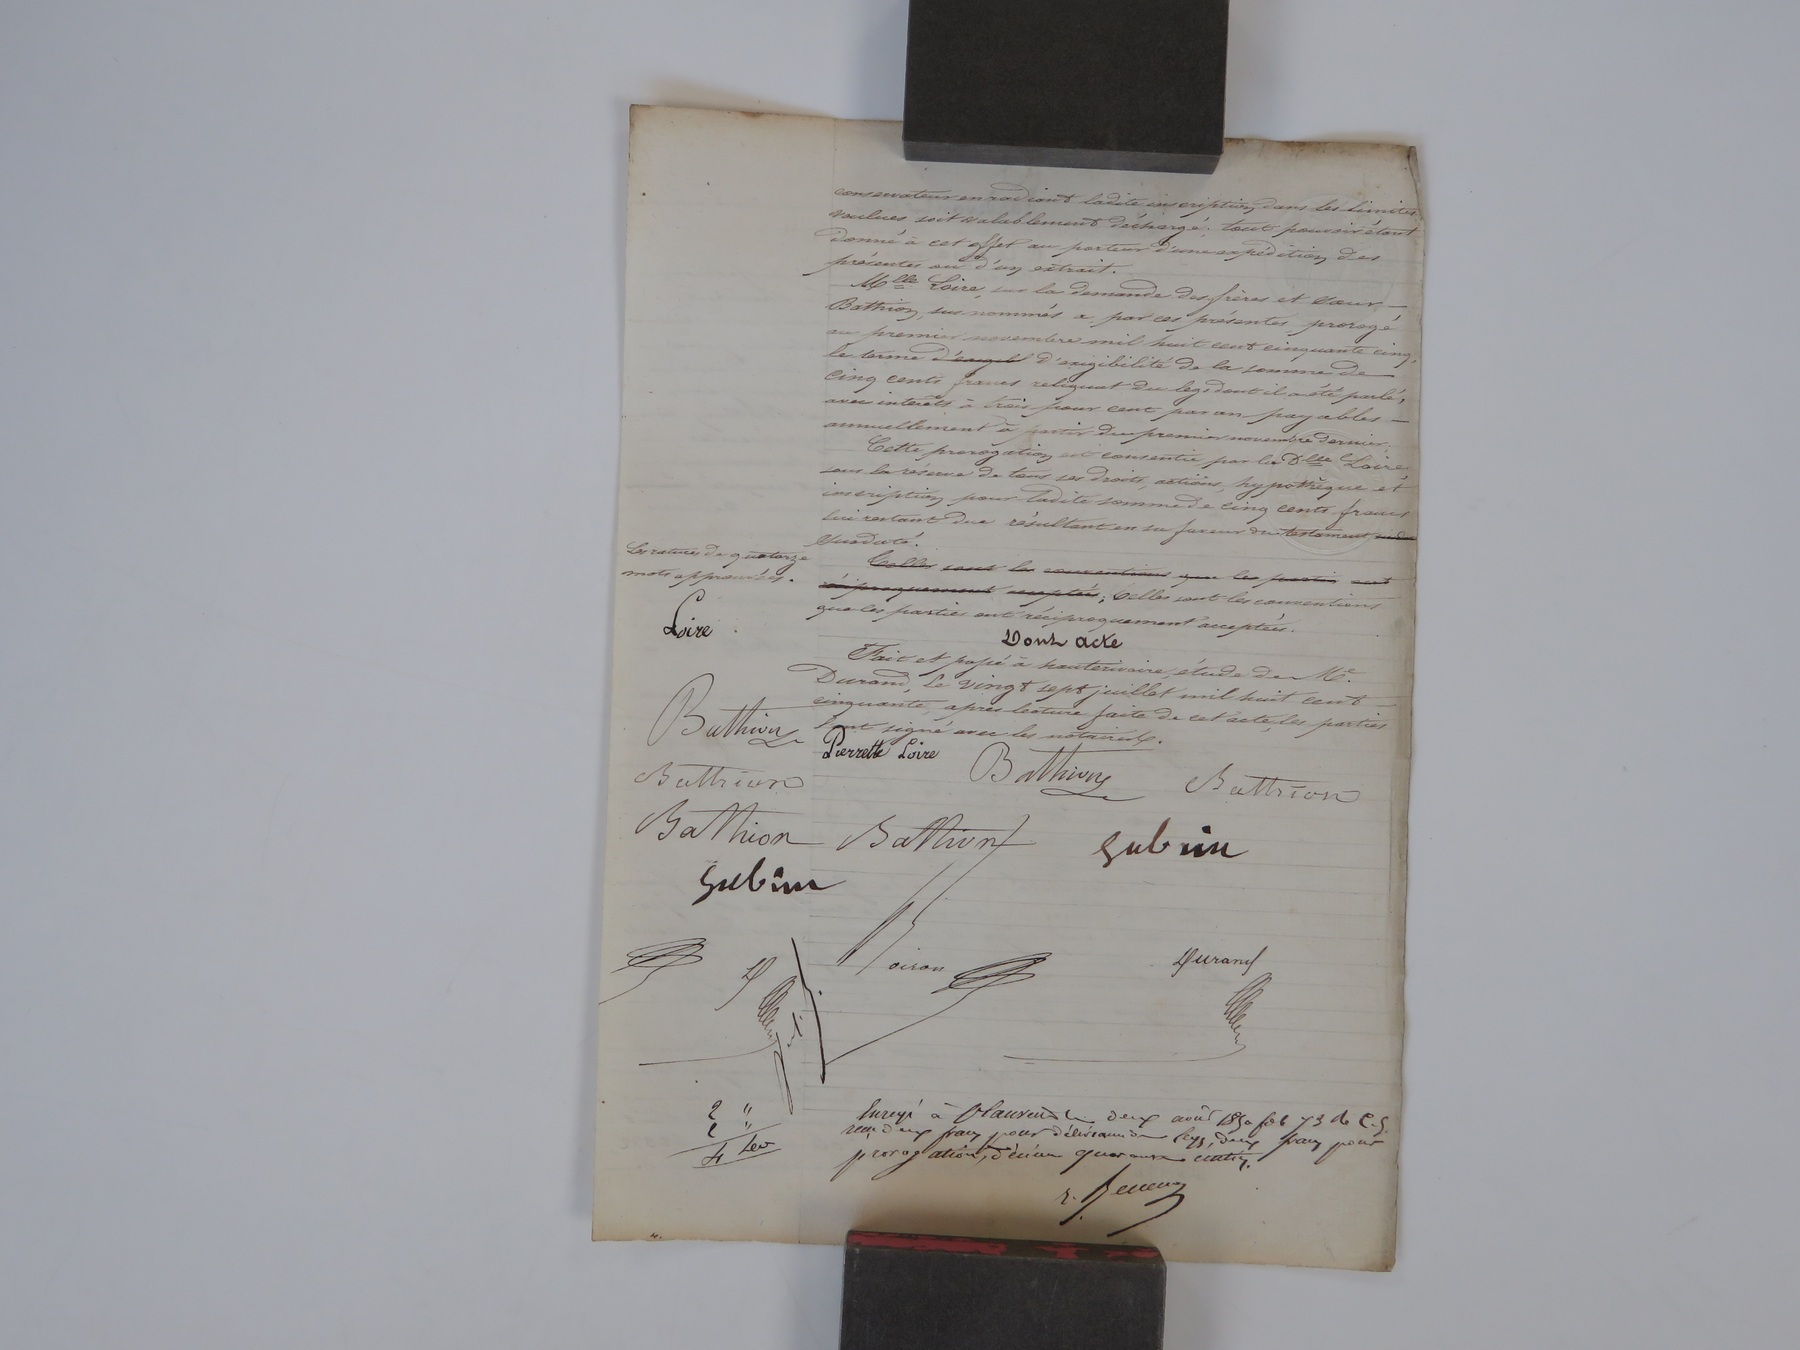 conservateur en radiant ladite inscription dans les limites
voulues soit valablement déchargé; tout pouvoir étant
donné à cet effet au porteur d'une expédition des
présentes ou d'un extrait.
Mlle Loire, sur la demande des frères et sœur
Bathion, susnommés a par ces présentes, prorogé
au premier novembre mil huit cent cinquante cinq,
le terme d'exigib d'exigibilité de la somme de
cinq cents francs reliquat du legs dont il a été parlé,
avec intérêts à trois pour cent par an payables
annuellement à partir du premier novembre dernier.
Cette prorogation est consentie par la Dlle Loire
sous la réserve de tous ses droits, actions, hypothèque et
inscription pour ladite somme de cinq cents francs
lui restant due résultant en sa faveur du testament
susdaté.
Les ratures de quatorze
mots approuvées.
Telles sont les conventions que les parties ont
réciproquement acceptées; Telles sont les conventions
que les parties ont réciproquement acceptées.
Loire
Dont acte
Fait et passé à hauterivoire, étude de Me
Durand, Le vingt sept juillet mil huit cent
cinquante, après lecture faite de cet acte, les parties
ont signé avec les notaires.
Bathion
Pierrette Loire Bathion Bathion
Bathion
Bathion Bathion Gubian
Gubian
Durand
D
2 "
2 "
4
Enregé à St Laurent le deux août 1850 fo 73
reçu deux francs pour délivrance de legs, deux francs pour
prorogation, décime quarante centimes.